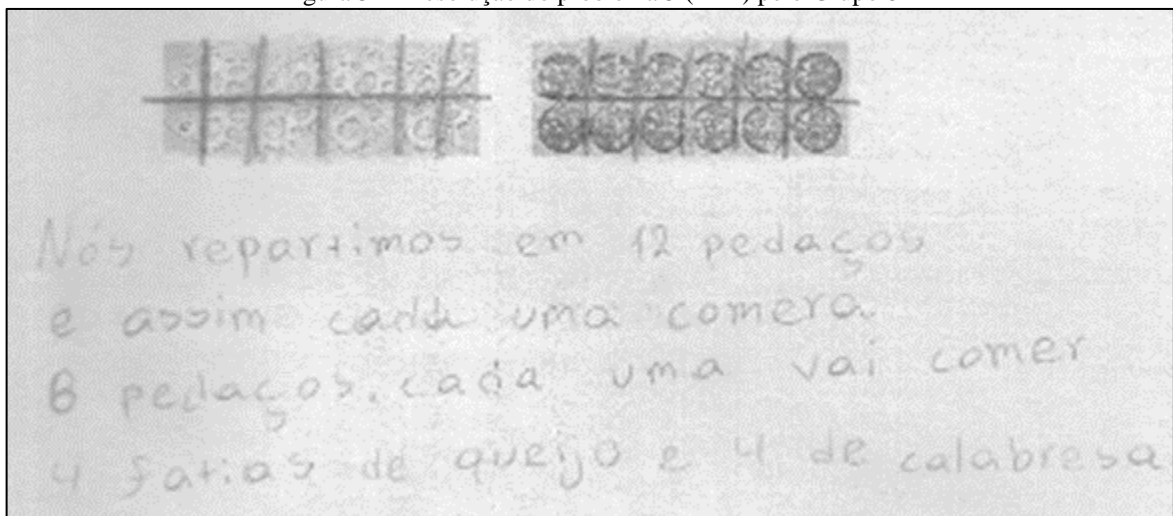 Nós repartimos em 12 pedaços
e assim cada uma comera
8 pedaços. cada uma vai comer
4 fatias de queijo e 4 de calabresa